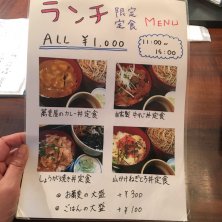 ランチ 限定定食 MENU
ALL ¥1,000
11:00〜
15:00
蕎麦屋のカレー丼定食
自家製 牛すじ丼定食
しょうが焼き丼定食
山かけねぎとろ丼定食
◎ お蕎麦の大盛 +¥300
◎ ごはんの大盛 +¥100